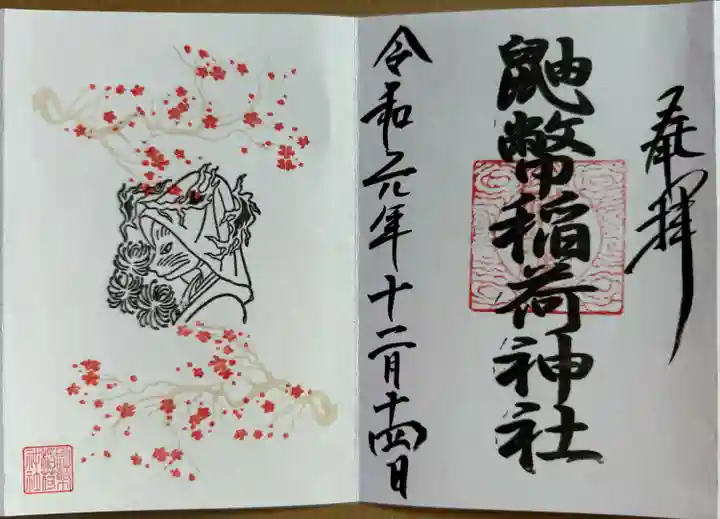 奉拝
鼬幣稲荷神社
令和元年十二月十四日